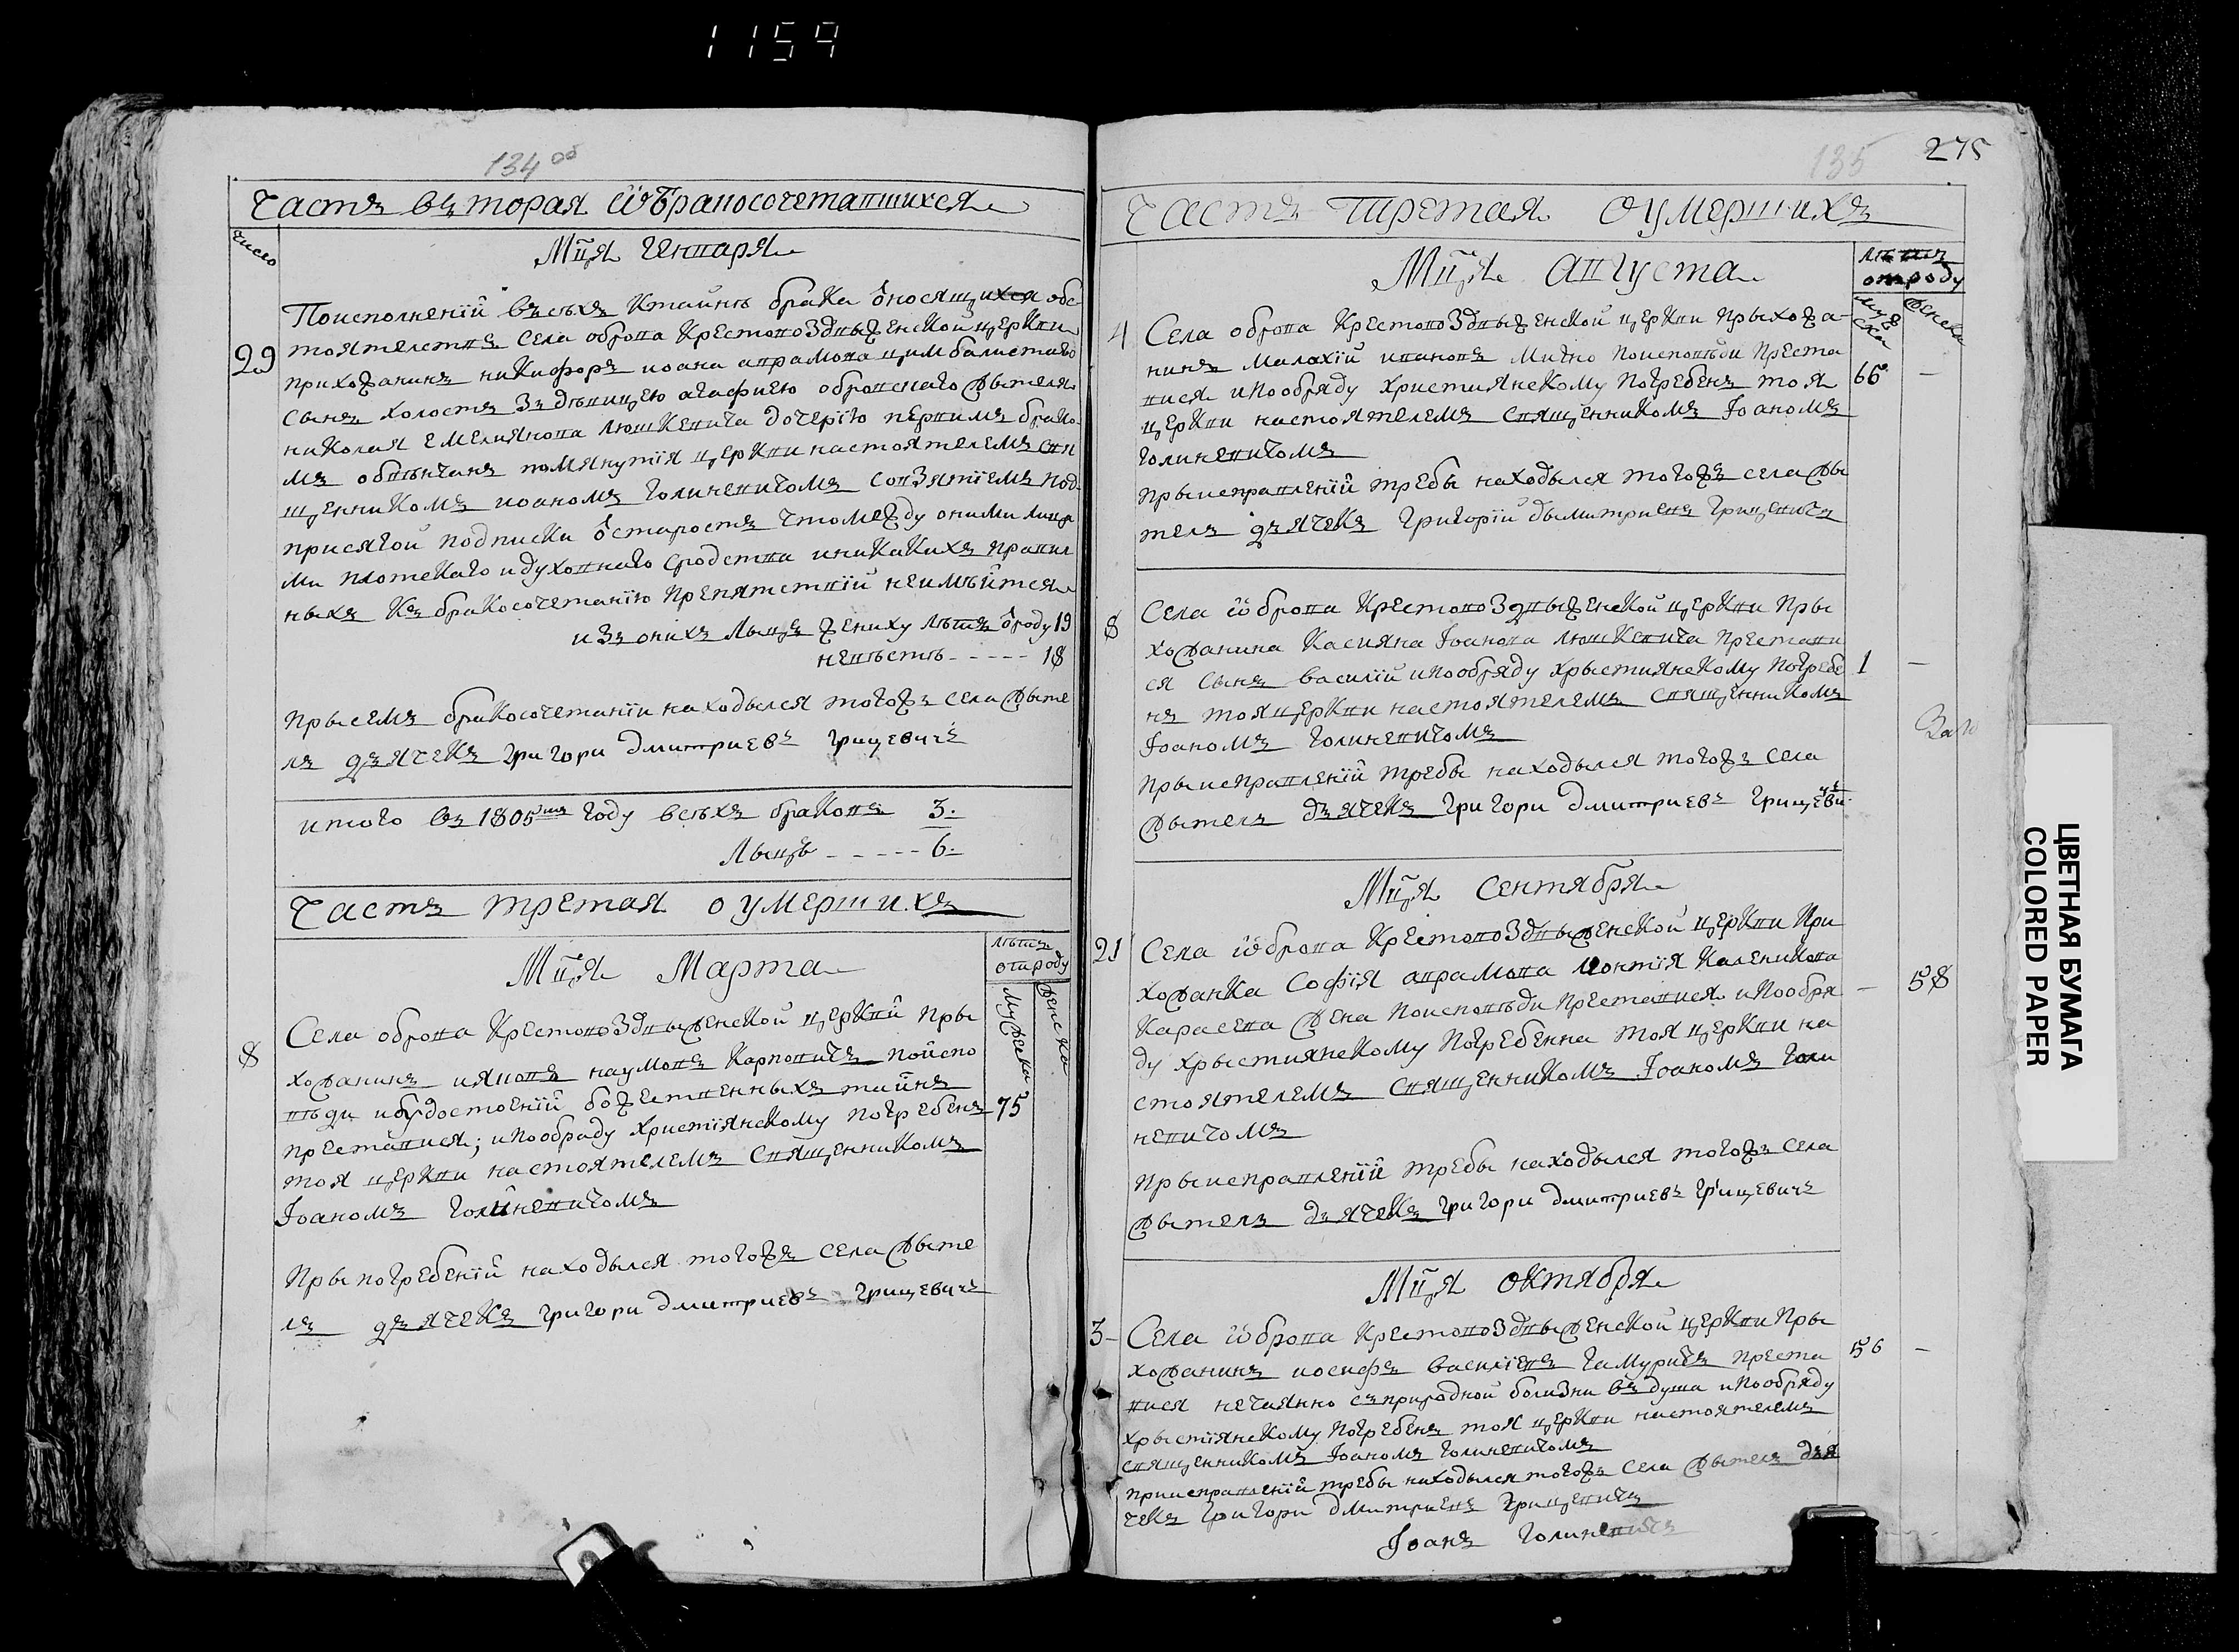 1159
134 об
Часть въторая ѿ браносочетавшихся
число
Мц̃я Генваря
Поисполненїй въсѣхъ Ктайнѣ брака ѿносящихся обс
тоятелствъ Села оброва Крестовоздвыженской церкви
29
прихожанинъ никифоръ иоана аврамова цимбалистаго
Сынъ холостъ Зъ дѣвицею агафиею обровскаго жытеля
николая Емелиянова люшкевича дочерїю первимъ брако
мъ обвѣнчанъ помянутїя церкви настоятелемъ свя
щенникомъ иоаномъ Голиневичомъ Совзятїемъ под
присягой подписки ѿстаростъ чтомежду оними лица
ми плотскаго идуховнаго сродства иникакихъ правил
ныхъ Къ бракосочетанїю препятствїй неимѣйтся
изъ онихъ Лыцъ жениху лѣтъ ѿроду 19
невѣстѣ - - - - - 18
Прысемъ бракосочетанїи находылся тогожъ села жыте
лъ дъячекъ григори дмитриевъ грицевичъ
итого въ 1805мъ году всѣхъ браковъ 3.
Лыцъ - - - - - 6.
Часть третая о умершихъ
лѣтъ
отроду
Мужеска
женска
Мц̃я Марта
Села оброва Крестовоздвыженской церквй Пры
8
хожанинъ наумовъ Карповичъ поиспо
вѣди иѹдостоенїй божественныхъ тайнъ
преставися; ипообраду христїянскому погребенъ
75
тоя церкви настоятелемъ Священникомъ
Иоаномъ Голиневичомъ
Прыпогребенїй находылся тогожъ села жыте
лъ дъячекъ григори дмитриевъ грицевичъ
135
275
Часть Третая Оумершихъ
лѣтъ
отроду
мужеска
женска
Мц̃я Августа
4
Села оброва Крестовоздвыженской церкви Прыхожа-
нинъ Малахїй ивановъ Мично поисповѣди Преста
вися ипообряду християнскому погребенъ тоя
66
—
церкви настоятелемъ Священникомъ Иоаномъ
Голиневичомъ
Прыисправленїй требы находылся тогожъ села жы
телъ дъячекъ Григорїй дымитриевъ Грицевичъ
8
Села ѿброва Крестовоздвыженской церкви Пры
хожанина Касияна Иоанова люшкевича Престави
ся Сынъ василїй ипообряду хрыстиянскому погребе
1
—
нъ тоя церкви настоятелемъ Священникомъ
Иоаномъ Голиневичомъ
Прыисправленїй требы находылся тогожъ села
жытелъ дъячекъ григори дмитриевъ грицевичъ
Мц̃я Сентября
21
Села ѿброва Крестовоздвыженской церкви При
хожанка Софїя аврамова Каленикова
—
58
Карасева жена Поисповѣди Преставися ипообря
ду хрыстиянскому погребенна тоя церкви на
стоятелемъ Священникомъ Иоаномъ Голи
невичомъ
Прыисправленїй требы находылся тогожъ села
жытелъ дъячекъ григори дмитриевъ грицевичъ
Мц̃я октября
3
Села ѿброва Крестовоздвыженской церкви Пры
56
—
хожанинъ иосифъ василїевъ Гамуричъ преста
вися нечаянно съприродной болизни въ душа ипообряду
хрыстїянскому погребенъ тоя церкви настоятелемъ
священникомъ Иоаномъ Голиневичомъ
приисправленїй требы находылся тогожъ села жытелъ дъя
чекъ григори дмитриевъ грицевичъ
Иоанъ Голиневичъ
ЦВЕТНАЯ БУМАГА
COLORED PAPER